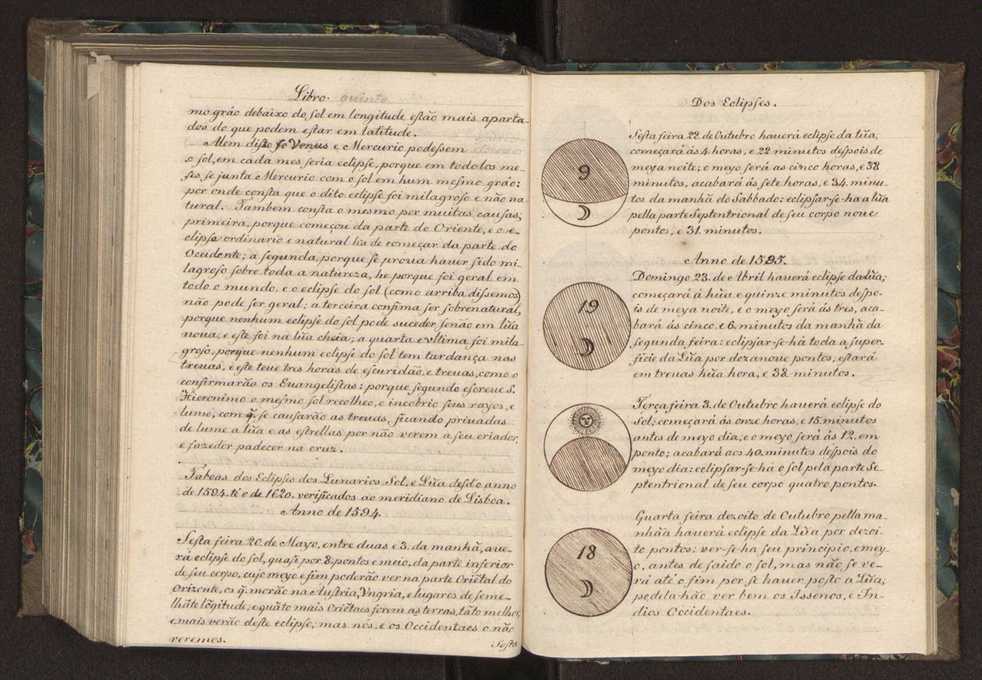 Libro quinto
mo grâo debaixo do sol em longitude estão mais aparta
dos do que podem estar em latitude.
Alem disto se Venus e Mercurio podessem
o sol, em cada mes, seria eclipse, porque em todolos me-
ses, se junta Mercurio com o sol em hum mesmo grâo;
por onde consta que o dito eclipse foi milagroso e não na
tural. Tambem consta o mesmo por muitas causas,
primeira, porque começou da parte do Oriente, e o e-
clipse ordinario e natural ha de começar da parte do
Occidente; a segunda, porque se prova hauer sido mi-
lagroso sobre toda a natureza, he porque foi geral em
todo o mundo, e o eclipse do sol (como arriba dissemos)
não pode ser geral; a terceira confirma ser sobrenatural,
porque nenhum eclipse do sol pode suceder, senão em lũa
noua, e este foi na lũa cheia; a quarta e vltima, foi mila
groso, porque nenhum eclipse do sol tem tardança nas
treuas, e este teue tres horas de escuridão, e treuas, como o
confirmarão os Euangelistas: porque segundo escreue S.
Hieronimo o mesmo sol recolheo, e incobrio seus rayos, e
lume, com q̃ se causarão as treuas, ficando priuadas
de lume a lũa e as estrellas por não verem a seu criador,
e fazedor padecer na cruz.
Taboas dos Eclipses dos Lunarios Sol, e Lũa desdo anno
de 1594. té o de 1620. verificados ao meridiano de Lisboa.
Anno de 1594.
Sesta feira 20. de Mayo, entre duas e 3. da manhã, aue-
rá eclipse do sol, quasi por 8. pontos e meio, da parte inferior
de seu corpo, cujo meyo e fim poderão ver na parte Oriẽtal do
Orizonte, os q̃ morão na Austria, Vngria, e lugares de seme-
lhãte lõgitude; e quãto mais Oriẽtaes forem as terras, tãto melhor,
e mais verão deste eclipse; mas nòs, e os Occidentaes o não
veremos.
Sesta
Dos Eclipses.
Sesta feira 22. de Outubro hauerá eclipse da lũa;
começará ás 4 horas, e 22 minutos despois de
meya noite; o meyo será as cinco horas, e 38
minutos, acabará ás sete horas, e 34. minu-
tos da manhã do Sabbado: eclipsar-se-ha a lũa
pella parte Septentrional de seu corpo noue
pontos, e 31. minutos.
9
Anno de 1595.
Domingo 23. de Abril hauerá eclipse da Lũa;
começará á hũa, e quinze minutos despo-
is de meya noite, e o meyo será ás tres, aca-
bará ás cinco, e 6. minutos da manhã da
segunda feira: eclipsar-se-há toda a super-
ficie da Lũa por dezanoue pontos, estará
em treuas hũa hora, e 38. minutos.
19
Terça feira 3. de Outubro hauerá eclipse do
Sol; começará ás onze horas, e 15. minutos
antes de meyo dia; e o meyo será ás 12. em
ponto; acabará aos 40. minutos despois do
meyo dia: eclipsar-se há o sol pela parte Se-
ptentrional de seu corpo quatro pontos.
Quarta feira dezoito de Outubro pella ma-
nhãa hauerá eclipse da Lũa por dezoi-
to pontos: ver-se-ha seu principio, e mey-
o, antes de saido o sol, mas não se ve-
rá até o fim por se hauer posto a Lũa;
pode-la-hão ver bem os Issenos, e In-
dios Occidentaes.
18